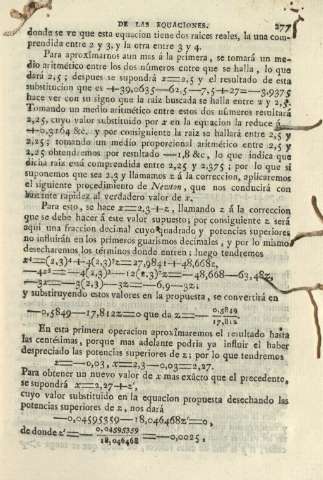 DE LAS EQUACIONES. 277
donde se ve que esta equacion tiene dos raices reales, la una com-
prendida entre 2 y 3, y la otra entre 3 y 4.
Para aproxîmarnos aun mas á la primera, se tomará un me-
dio aritmético entre los dos números entre que se halla, lo que
dará 2,5; despues se supondrá x=2,5 y el resultado de esta
substitucion que es +39,0635—62,5—7,5+27=—3,9375
hace ver con su signo que la raiz buscada se halla entre 2 y 2,5.
Tomando un medio aritmético entre estos dos números resultará
2,25, cuyo valor substituido por x en la equacion la reduce á
+0,3164 &c. y por consiguiente la raiz se hallará entre 2,5 y
2,25; tomando un medio proporcional aritmético entre 2,5 y
2,25 obtendremos por resultado —1,8 &c., lo que indica que
dicha raiz está comprendida entre 2,25 y 2,375; por lo que si
suponemos que sea 2,3 y llamamos z á la correccion, aplicaremos
el siguiente procedimiento de Newton, que nos conducirá con
bastante rapidez al verdadero valor de x.
Para esto, se hace x=2,3+z, llamando z á la correccion
que se debe hacer á este valor supuesto; por consiguiente z será
aquí una fraccion decimal cuyo quadrado y potencias superiores
no influirán en los primeros guarismos decimales, y por lo mismo
desecharemos los términos donde entren; luego tendremos
x⁴=(2,3)⁴+4(2,3)³z=27,9841+48,668z,
—4x³=—4(2,3)³—12(2,3)²z=—48,668—63,48z,
—3x=—3(2,3)—3z=—6,9—3z;
y substituyendo estos valores en la propuesta, se convertirá en
—0,5849—17,812z=0 que da z=— 0,5849
17,812
En esta primera operacion aproxîmaremos el resultado hasta
las centésimas, porque mas adelante podria ya influir el haber
despreciado las potencias superiores de z; por lo que tendremos
z=—0,03, x=2,3—0,03=2,27.
Para obtener un nuevo valor de x mas exâcto que el precedente,
se supondrá x=2,27+z′,
cuyo valor substituido en la equacion propuesta desechando las
potencias superiores de z, nos dará
—0,04595359—18,046468z′=0,
de donde z′=— 0,04595359
18,046468 =—0,0025,